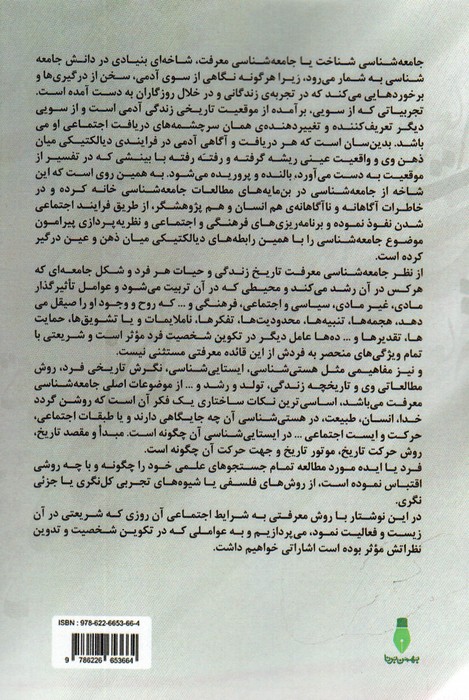 جامعه‌شناسی شناخت یا جامعه‌شناسی معرفت، شاخه‌ای بنیادی در دانش جامعه
شناسی به شمار می‌رود، زیرا هرگونه نگاهی از سوی آدمی، سخن از درگیری‌ها و
برخوردهایی می‌کند که در تجربه‌ی زندگانی و در خلال روزگاران به دست آمده است.
تجربیاتی که از سویی، برآمده از موقعیت تاریخی زندگی آدمی است و از سویی
دیگر تعریف‌کننده و تغییردهنده‌ی همان سرچشمه‌های دریافت اجتماعی او می
باشد. بدین‌سان است که هر دریافت و آگاهی آدمی در فرایندی دیالکتیکی میان
ذهن وی و واقعیت عینی ریشه گرفته و رفته رفته با بینشی که در تفسیر از
موقعیت به دست می‌آورد، بالنده و پروریده می‌شود. به همین روی است که این
شاخه از جامعه‌شناسی در بن‌مایه‌های مطالعات جامعه‌شناسی خانه کرده و در
خاطرات آگاهانه و ناآگاهانه‌ی هم انسان و هم پژوهشگر، از طریق فرایند اجتماعی
شدن نفوذ نموده و برنامه‌ریزی‌های فرهنگی و اجتماعی و نظریه‌پردازی پیرامون
موضوع جامعه‌شناسی را با همین رابطه‌های دیالکتیکی میان ذهن و عین درگیر
کرده است.
از نظر جامعه‌شناسی معرفت تاریخ زندگی و حیات هر فرد و شکل جامعه‌ای که
هرکس در آن رشد می‌کند و محیطی که در آن تربیت می‌شود و عوامل تأثیرگذار
مادی، غیر مادی، سیاسی و اجتماعی، فرهنگی و ... که روح و وجود او را صیقل می
دهد، هجمه‌ها، تنبیه‌ها، محدودیت‌ها، تفکرها، ناملایمات و یا تشویق‌ها، حمایت
ها، تقدیرها و ... ده‌ها عامل دیگر در تکوین شخصیت فرد مؤثر است و شریعتی با
تمام ویژگی‌های منحصر به فردش از این قائده معرفتی مستثنی نیست.
و نیز مفاهیمی مثل هستی‌شناسی، ایستایی‌شناسی، نگرش تاریخی فرد، روش
مطالعاتی وی و تاریخچه زندگی، تولد و رشد و ... از موضوعات اصلی جامعه‌شناسی
معرفت می‌باشد، اساسی‌ترین نکات ساختاری یک فکر آن است که روشن گردد
خدا، انسان، طبیعت، در هستی‌شناسی آن چه جایگاهی دارند و یا طبقات اجتماعی،
حرکت و ایست اجتماعی ... در ایستایی‌شناسی آن چگونه است. مبدأ و مقصد تاریخ،
روش حرکت تاریخ، موتور تاریخ و جهت حرکت آن چگونه است.
فرد یا ایده مورد مطالعه تمام جستجوهای علمی خود را چگونه و با چه روشی
اقتباس نموده است، از روش‌های فلسفی یا شیوه‌های تجربی کل‌نگری یا جزئی
نگری.
در این نوشتار با روش معرفتی به شرایط اجتماعی آن روزی که شریعتی در آن
زیست و فعالیت نمود، می‌پردازیم و به عواملی که در تکوین شخصیت و تدوین
نظراتش مؤثر بوده است اشاراتی خواهیم داشت.
ISBN : 978-622-6653-66-4
9 786226 653664
بهمن برنا